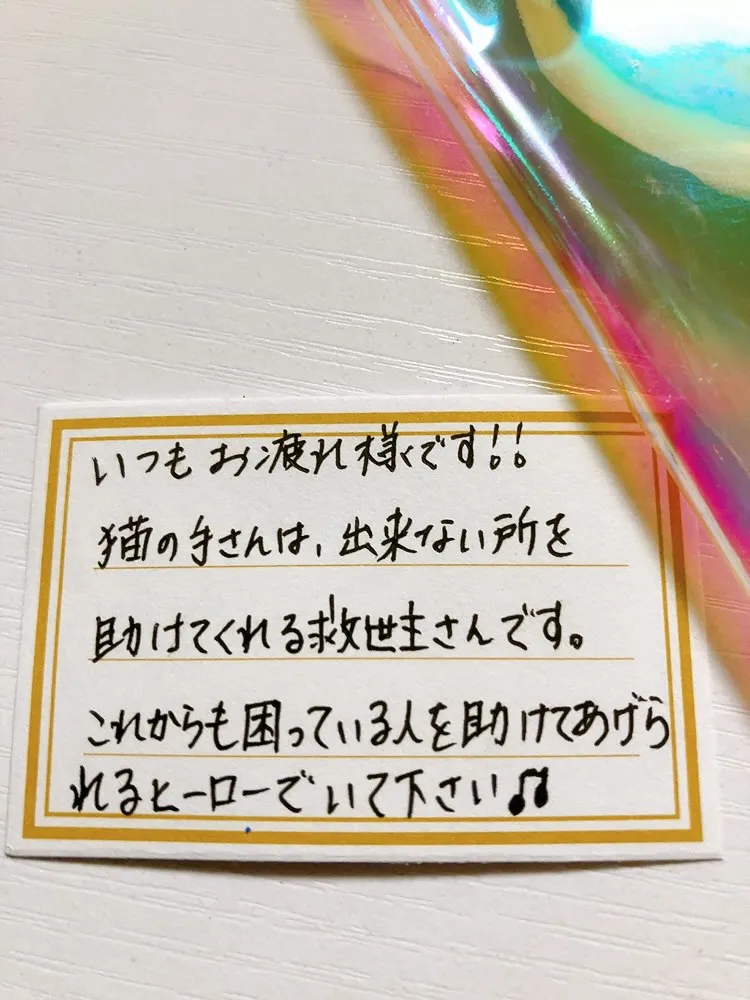 いつもお疲れ様です!!
猫の手さんは、出来ない所を
助けてくれる救世主さんです。
これからも困っている人を助けてあげら
れるヒーローでいて下さい♫